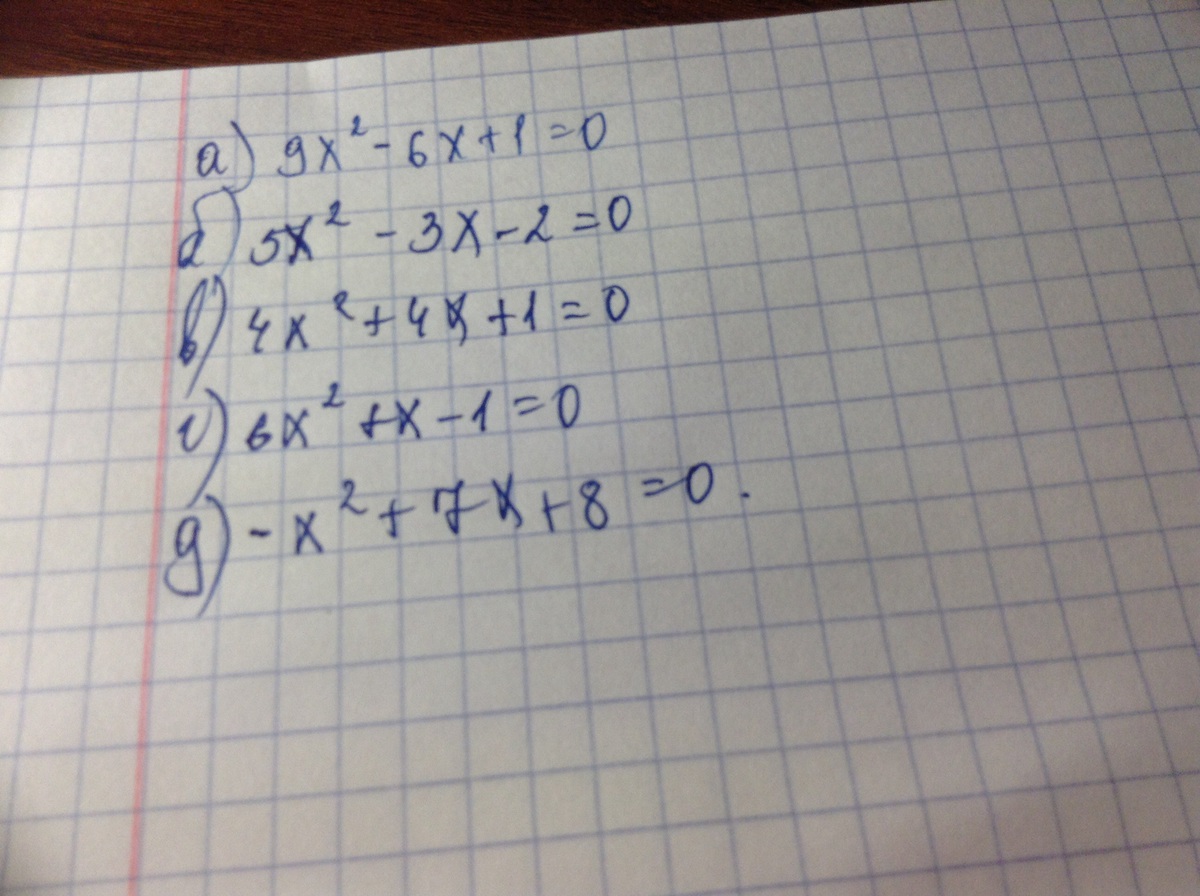 а) 9x² - 6x + 1 = 0
б) 5x² - 3x - 2 = 0
в) 4x² + 4x + 1 = 0
г) 6x² + x - 1 = 0
д) - x² + 7x + 8 = 0.